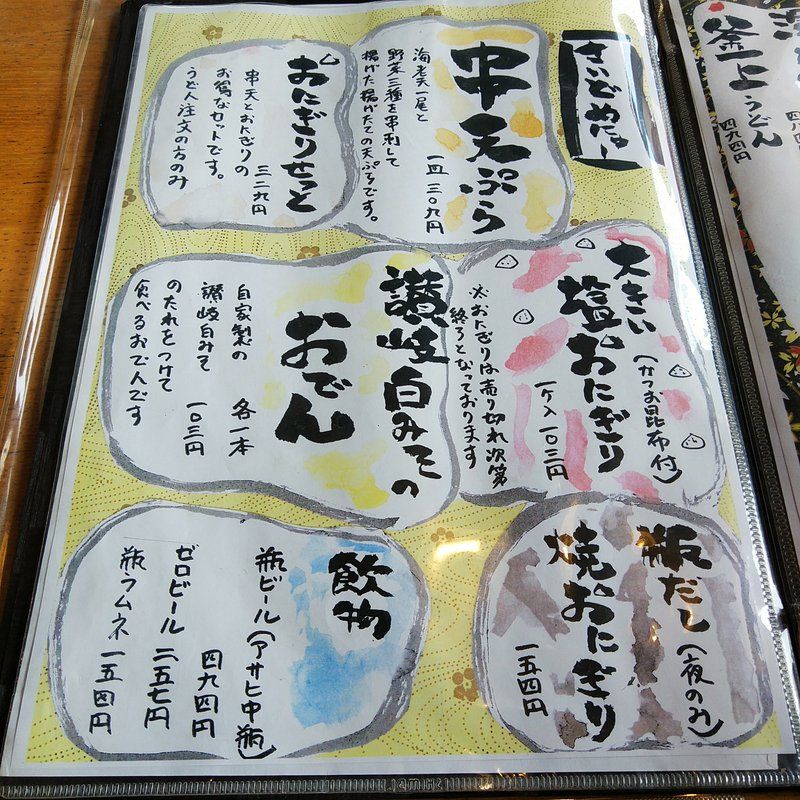 さいどめにゅー
串天ぷら
海老天一尾と
野菜三種を串刺しして
揚げた揚げたての天ぷらです。
一皿 三〇九円
おにぎりせっと
三二九円
串天とおにぎりの
お得なセットです。
うどん注文の方のみ
大きい
塩おにぎり
(かつお昆布付)
一ケ入 一〇三円
※おにぎりは売り切れ次第
終了となっております
讃岐白みその
おでん
各一本
一〇三円
自家製の
讃岐白みそ
のたれをつけて
食べるおでんです
瓶だし
(夜のみ)
焼おにぎり
一五四円
飲物
瓶ビール(アサヒ中瓶)
四九四円
ゼロビール 二五七円
瓶ラムネ 一五四円
釜上うどん
四九四円